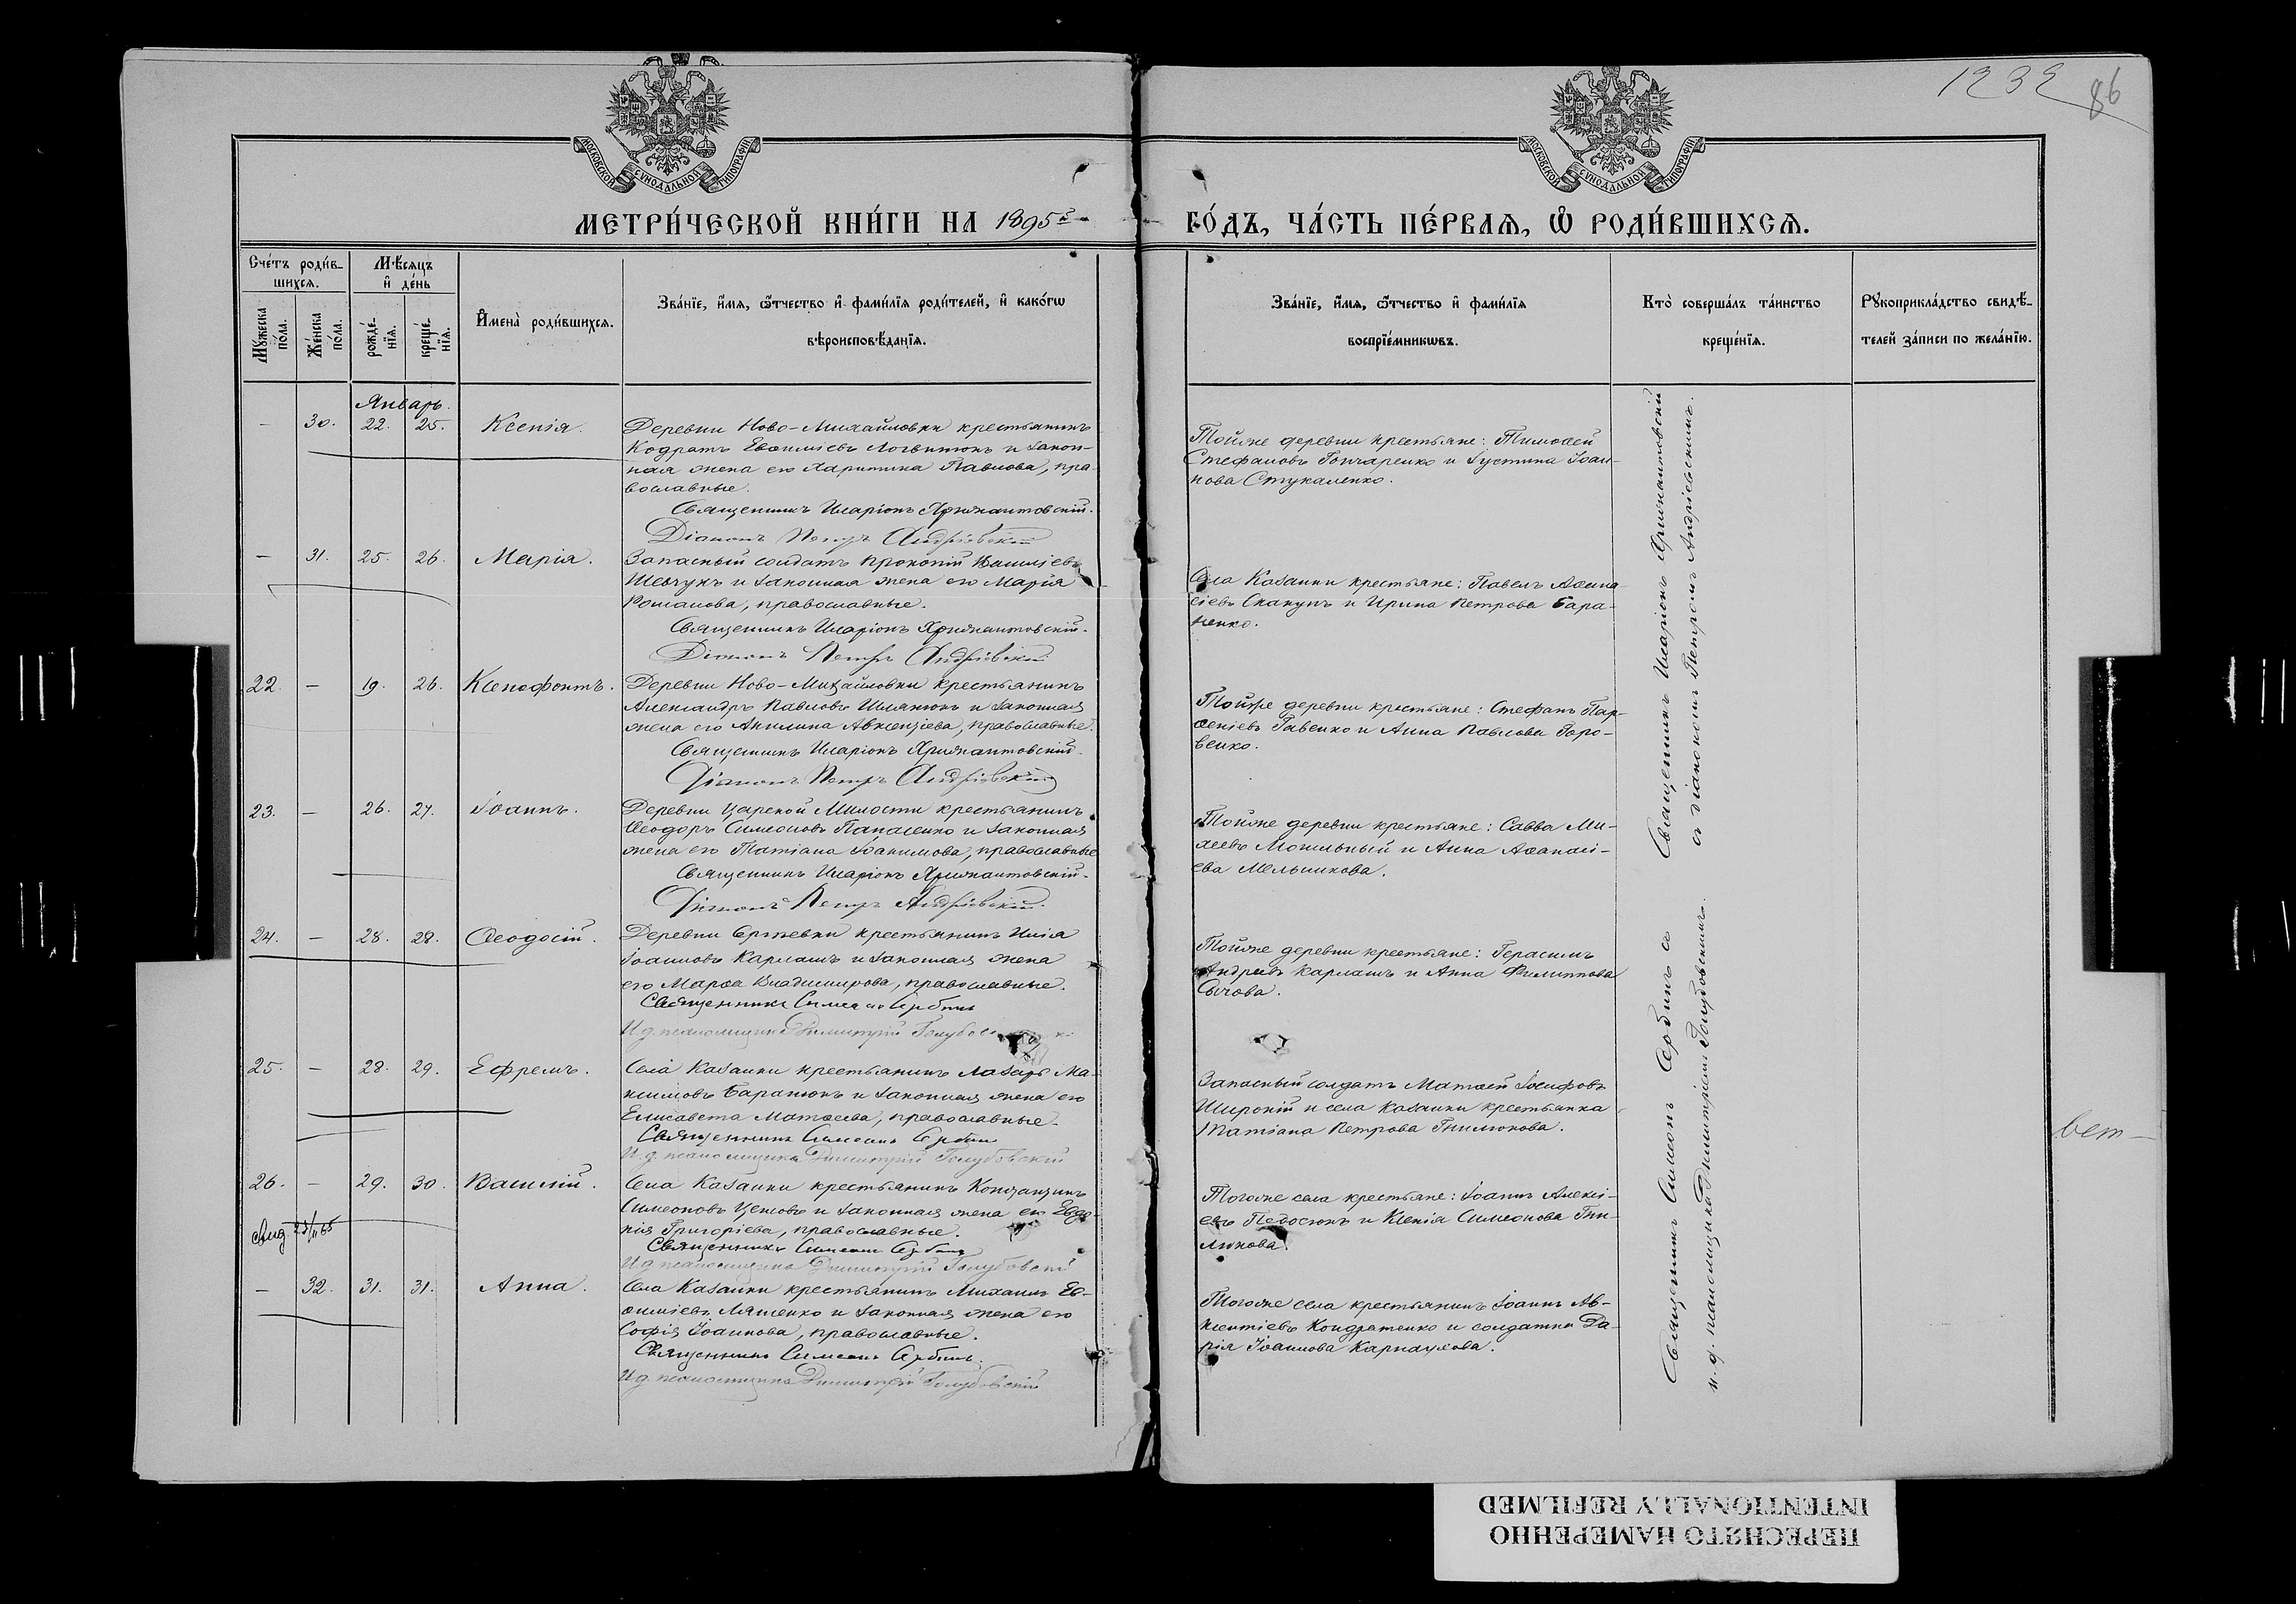 1232
86
МОСКОВСКОЙ СѴНОДАЛЬНОЙ ТИПОГРАФІИ
МОСКОВСКОЙ СѴНОДАЛЬНОЙ ТИПОГРАФІИ
МЕТРИ́ЧЕСКОЙ КНИ́ГИ НА 1895й ГО́ДЪ, ЧА́СТЬ ПЕ́РВАѦ, Ѽ РОДИ́ВШИХСѦ.
Сче́тъ роди́в-
шихсѧ.
Мѣ́сѧцъ
и҆ де́нь
Мꙋ́жеска
по́ла.
Же́нска
по́ла.
рожде́-
нїѧ.
креще́-
нїѧ.
И҆мена̀ роди́вшихсѧ.
Зва́нїе, и҆́мѧ, ѻ҆́тчество и҆ фами́лїѧ роди́телей, и҆ како́гѡ
вѣроисповѣ́данїѧ.
Зва́нїе, и҆́мѧ, ѻ҆́тчество и҆ фами́лїѧ
воспрїе́мникѡвъ.
Кто̀ соверша́лъ та́инство
креще́нїѧ.
Рꙋкоприкла́дство свидѣ́-
телей за́писи по жела́нїю.
Январь.
- 30. 22. 25. Ксенія.
Деревни Ново-Михайловки крестьянинъ
Кодратъ Евѳиміевъ Логвинюкъ и закон-
ная жена его Харитина Павлова, пра-
вославные.
Священникъ Иларіонъ
Діаконъ Петръ Андріевскій
Тойже деревни крестьяне: Тимоѳей
Стефановъ Гончаренко и Іустина Іоан-
нова Стукаленко.
- 31. 25. 26. Марія.
Запасный солдатъ Прокопій Василіевъ
Шевчукъ и законная жена его Марія
Романова, православные.
Священникъ Иларіонъ
Діаконъ Петръ Андріевскій
Села Казанки крестьяне: Павелъ Аѳана-
сіевъ Скакунъ и Ирина Петрова Бара-
ненко.
22. - 19. 26. Ксенофонтъ.
Деревни Ново-Михайловки крестьянинъ
Александръ Павловъ Шлянюкъ и законная
жена его Акилина Авксенціева, православные.
Священникъ Иларіонъ
Діаконъ Петръ Андріевскій
Тойже деревни крестьяне: Стефанъ Пар-
ѳеніевъ Гавенко и Анна Павлова Горо-
венко.
23. - 26. 27. Іоаннъ.
Деревни Царской Милости крестьянинъ
Ѳеодоръ Симеоновъ Панасенко и законная
жена его Татіана Іоакимова, православные
Священникъ Иларіонъ
Діаконъ Петръ Андріевскій.
Тойже деревни крестьяне: Савва Ми-
хеевъ Могильный и Анна Аѳанасі-
ева Мельникова.
24. - 28. 28. Ѳеодосій.
Деревни крестьянинъ Илія
Іоанновъ Карлашъ и законная жена
его Марѳа Владимирова, православные.
Священникъ Симеонъ Сербинъ
И. д. псаломщика Димитрій
Тойже деревни крестьяне: Герасимъ
Андреевъ Карлашъ и Анна Филиппова
Сычова.
25. - 28. 29. Ефремъ.
Села Казанки крестьянинъ Лазарь Ма-
ксимовъ Баранюкъ и законная жена его
Елисавета Матѳеева, православные.
Священникъ Симеонъ Сербинъ
И. д. псаломщика Димитрій Голубовскій
Запасный солдатъ Матѳей Іосифовъ
Широкій и села Казанки крестьянка
Татіана Петрова Гнилюкова.
вет-
26. - 29. 30. Василій.
Села Казанки крестьянинъ Константинъ
Симеоновъ Цептовъ и законная жена его Евдо-
кія Григоріева, православные.
Священникъ Симеонъ Сербинъ
И. д. псаломщика Димитрій Голубовскій
Тогоже села крестьяне: Іоаннъ Алексі-
евъ Федосюкъ и Ксенія Симеонова Гни-
люкова.
- 32. 31. 31. Анна.
Села Казанки крестьянинъ Михаилъ Ев-
ѳиміевъ Ляшенко и законная жена его
Софія Іоаннова, православные.
Священникъ Симеонъ Сербинъ.
И. д. псаломщика Димитрій Голубовскій
Тогоже села крестьянинъ Іоаннъ Ав-
ксентіевъ Кондратенко и солдатка Да-
рія Іоаннова Карнаухова.
Священникъ Иларіонъ
съ діакономъ Петромъ Андріевскимъ.
Священникъ Симеонъ Сербинъ съ
и. д. псаломщика Димитріемъ Голубовскимъ.
ПЕРЕСНЯТО НАМЕРЕННО
INTENTIONALLY REFILMED